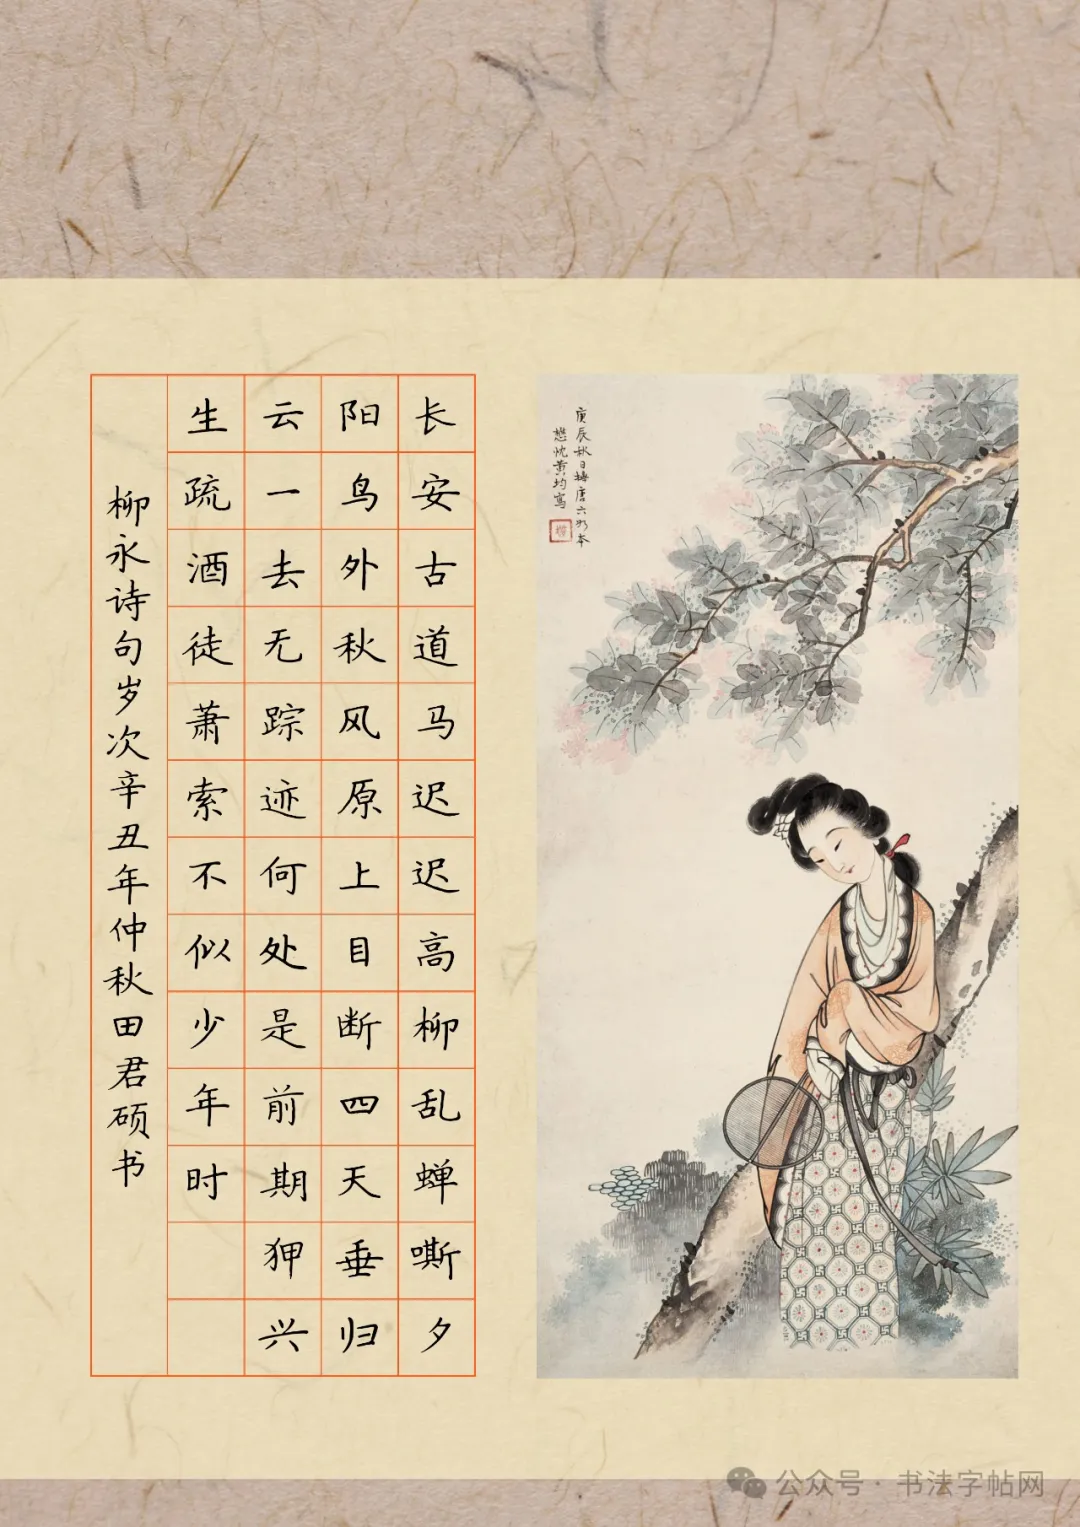 庚辰秋日橅唐六如本
懋忱黄均写
长安古道马迟迟高柳乱蝉嘶夕
阳鸟外秋风原上目断四天垂归
云一去无踪迹何处是前期狎兴
生疏酒徒萧索不似少年时
柳永诗句岁次辛丑年仲秋田君硕书
公众号·书法字帖网